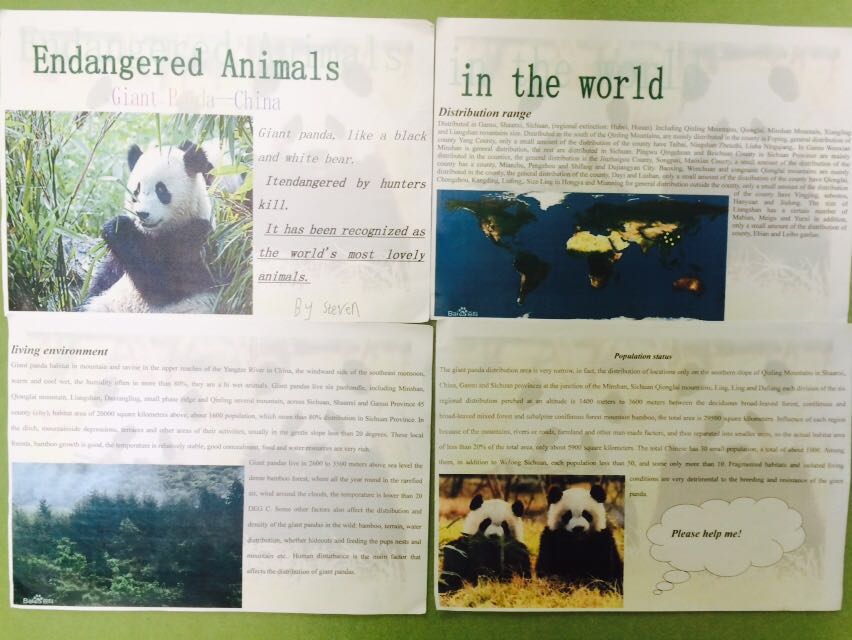 Endangered Animals
Giant Panda—China
Giant panda, like a black
and white bear.
Itendangered by hunters
kill.
It has been recognized as
the world's most lovely
animals.
By Steven
in the world
Distribution range
Distributed in Gansu, Shaanxi, Sichuan, (regional extinction: Hubei, Hunan) Including Qinling Mountains, Qionglai, Minshan Mountain, Xiangling
and Liangshan mountains size. Distributed in the south of the Qinling Mountains, are mainly distributed in the county is Foping, general distribution of
county Yang County, only a small amount of the distribution of the county have Taibai, Ningshan Zhouzhi, Liuba Ningqiang. In Gansu Wenxian
Minshan is general distribution, the rest are distributed in Sichuan. Pingwu Qingchuan and Beichuan County in Sichuan Province are mainly
distributed in the counties, the general distribution is the Jiuzhaigou County, Songpan, Maoxian County, a small amount of the distribution of the
county has a county, Mianzhu, Pengzhou and Shifang and Dujiangyan City. Baoxing, Wenchuan and congruent Qionglai mountains are mainly
distributed in the county, the general distribution of the county, Dayi and Lushan, only a small amount of the distribution of the county have Qionglai,
Chongzhou, Kangding, Luding. Size Ling in Hongya and Mianning for general distribution outside the county, only a small amount of the distribution
of the county have Yingjing,
Hanyuan and Jiulong. The size of
Liangshan has a certain number of
Mabian, Meigu and Yuexi in addition,
only a small amount of the distribution of
county, Ebian and Leibo
Bai百科
living environment
Giant panda habitat in mountain and ravine in the upper reaches of the Yangtze River in China, the windward side of the southeast monsoon,
warm and cool wet, the humidity often in more than 80%, they are a hi wet animals. Giant pandas live six patchindle, including Minshan,
Qionglai mountain, Liangshan, Daxiangling, small phase ridge and Qinling several mountain, across Sichuan, Shaanxi and Gansu Province 45
county (city), habitat area of 20000 square kilometers above, about 1600 population, which more than 80% distribution in Sichuan Province. In
the ditch, mountainside depressions, terraces and other areas of their activities, usually in the gentle slope less than 20 degrees. These local
forests, bamboo growth is good, the temperature is relatively stable, good concealment, food and water resources are very rich.
Giant pandas live in 2600 to 3500 meters above sea level the
dense bamboo forest, where all the year round in the rarefied
air, wind around the clouds, the temperature is lower than 20
DEG C. Some other factors also affect the distribution and
density of the giant pandas in the wild: bamboo, terrain, water
distribution, whether hideouts and feeding the pups nests and
mountain etc. Human disturbance is the main factor that
affects the distribution of giant pandas.
Bai百科
Population status
The giant panda distribution area is very narrow, in fact, the distribution of locations only on the southern slope of Qinling Mountains in Shaanxi,
China, Gansu and Sichuan provinces at the junction of the Minshan, Sichuan Qionglai mountains, Ling, Ling and Daliang each division of the six
regional distribution perched at an altitude is 1400 meters to 3600 meters between the deciduous broad-leaved forest, coniferous and
broad-leaved mixed forest and subalpine coniferous forest mountain bamboo, the total area is 29500 square kilometers. Influence of each region
because of the mountains, rivers or roads, farmland and other man-made factors, and thus separated into smaller areas, so the actual habitat area
of less than 20% of the total area, only about 5900 square kilometers. The total Chinese has 30 small population, a total of about 1000. Among
them, in addition to Wolong Sichuan, each population less than 50, and some only more than 10. Fragmented habitats and isolated living
conditions are very detrimental to the breeding and resistance of the giant
panda.
Please help me!